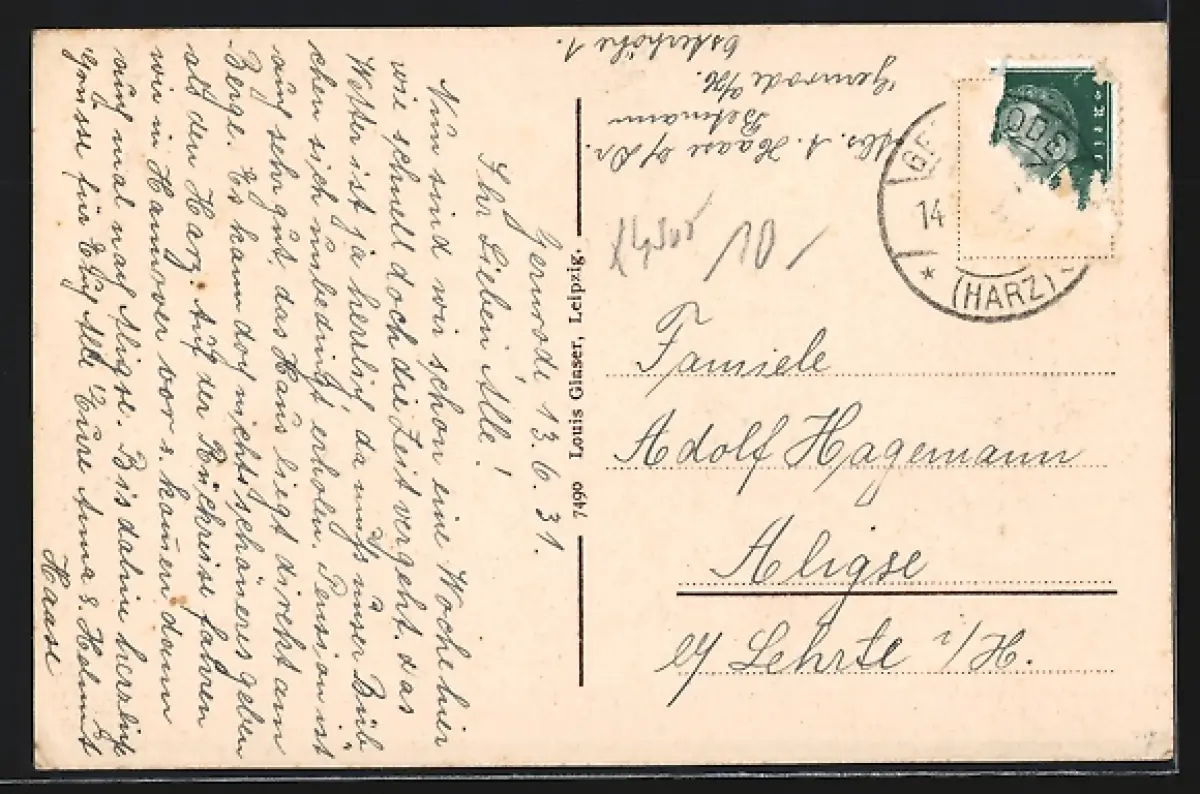 Gernrode 13.6.31.
Ihr Lieben Alle!
Nun sind wir schon eine Woche hier
wie schnell doch die Zeit vergeht. das
Wetter ist ja herrlich da muß unser Bub
chen sich unbedingt erholen. Pension ist
auch sehr gut, das Haus liegt direkt am
Berge. Es kann doch nichts schöneres geben
als den Harz. Auf der Rückreise fahren
wir in Hannover vor u. kommen dann
auch mal nach Aligse. Bis dahin herzlich
Grüsse für Euch Alle Eure Anna u. Helmut
Haase
Abs. A. Haase b/ Dr.
Gernrode a/H.
Osterhöhe 1.
7490 Louis Glaser, Leipzig.
10
GE ODE
14
* (HARZ)
Familie
Adolf Hagemann
Aligse
b/ Lehrte i/H.